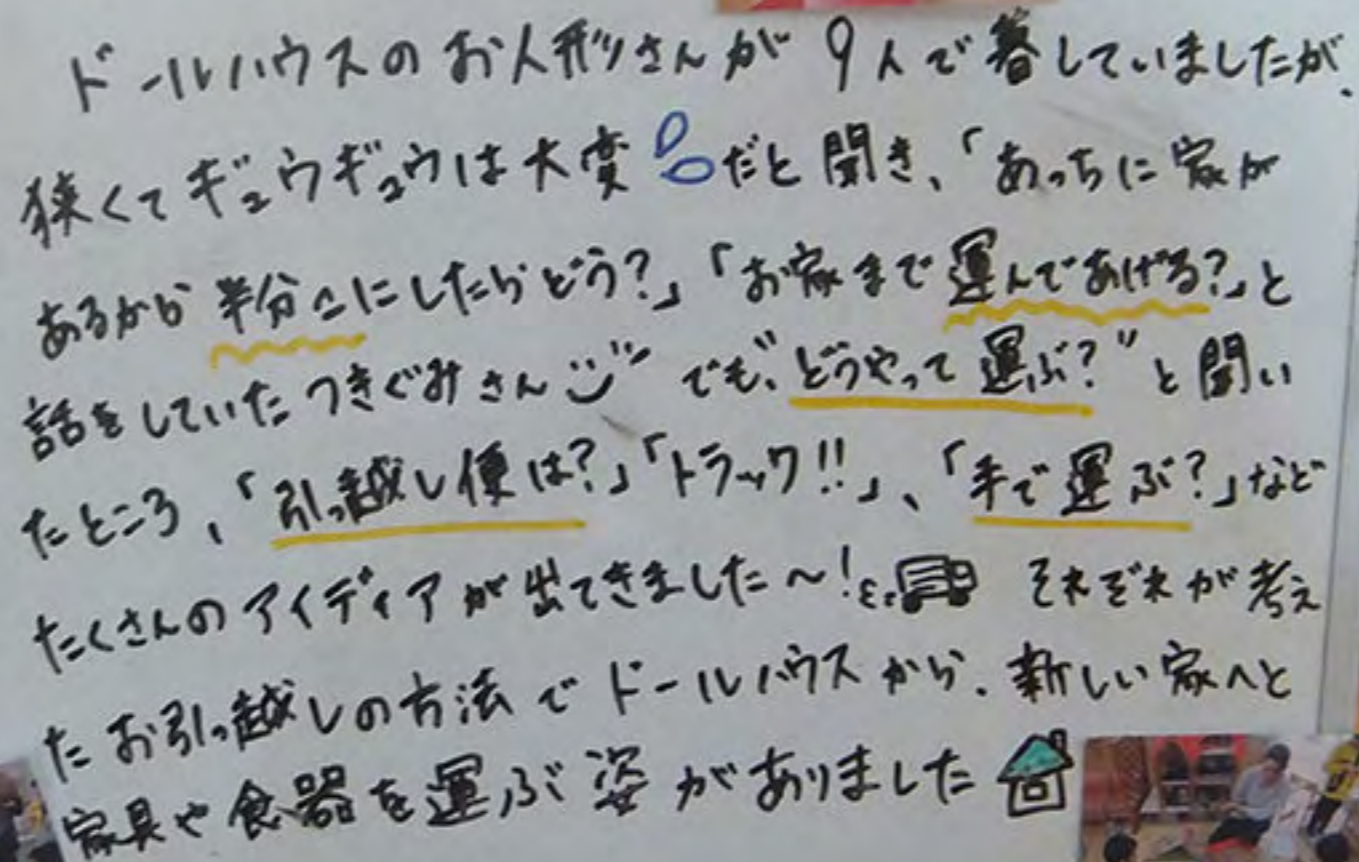 ドールハウスのお人形さんが9人で暮していましたが、
狭くてギュウギュウは大変だと聞き、「あっちに家が
あるから半分こにしたらどう?」「お家まで運んであげる?」と
話をしていたつきぐみさん でも、"どうやって運ぶ?"と聞い
たところ、「引っ越し便は?」「トラック!!」、「手で運ぶ?」など
たくさんのアイディアが出てきました～! それぞれが考え
たお引っ越しの方法でドールハウスから、新しい家へと
家具や食器を運ぶ姿がありました